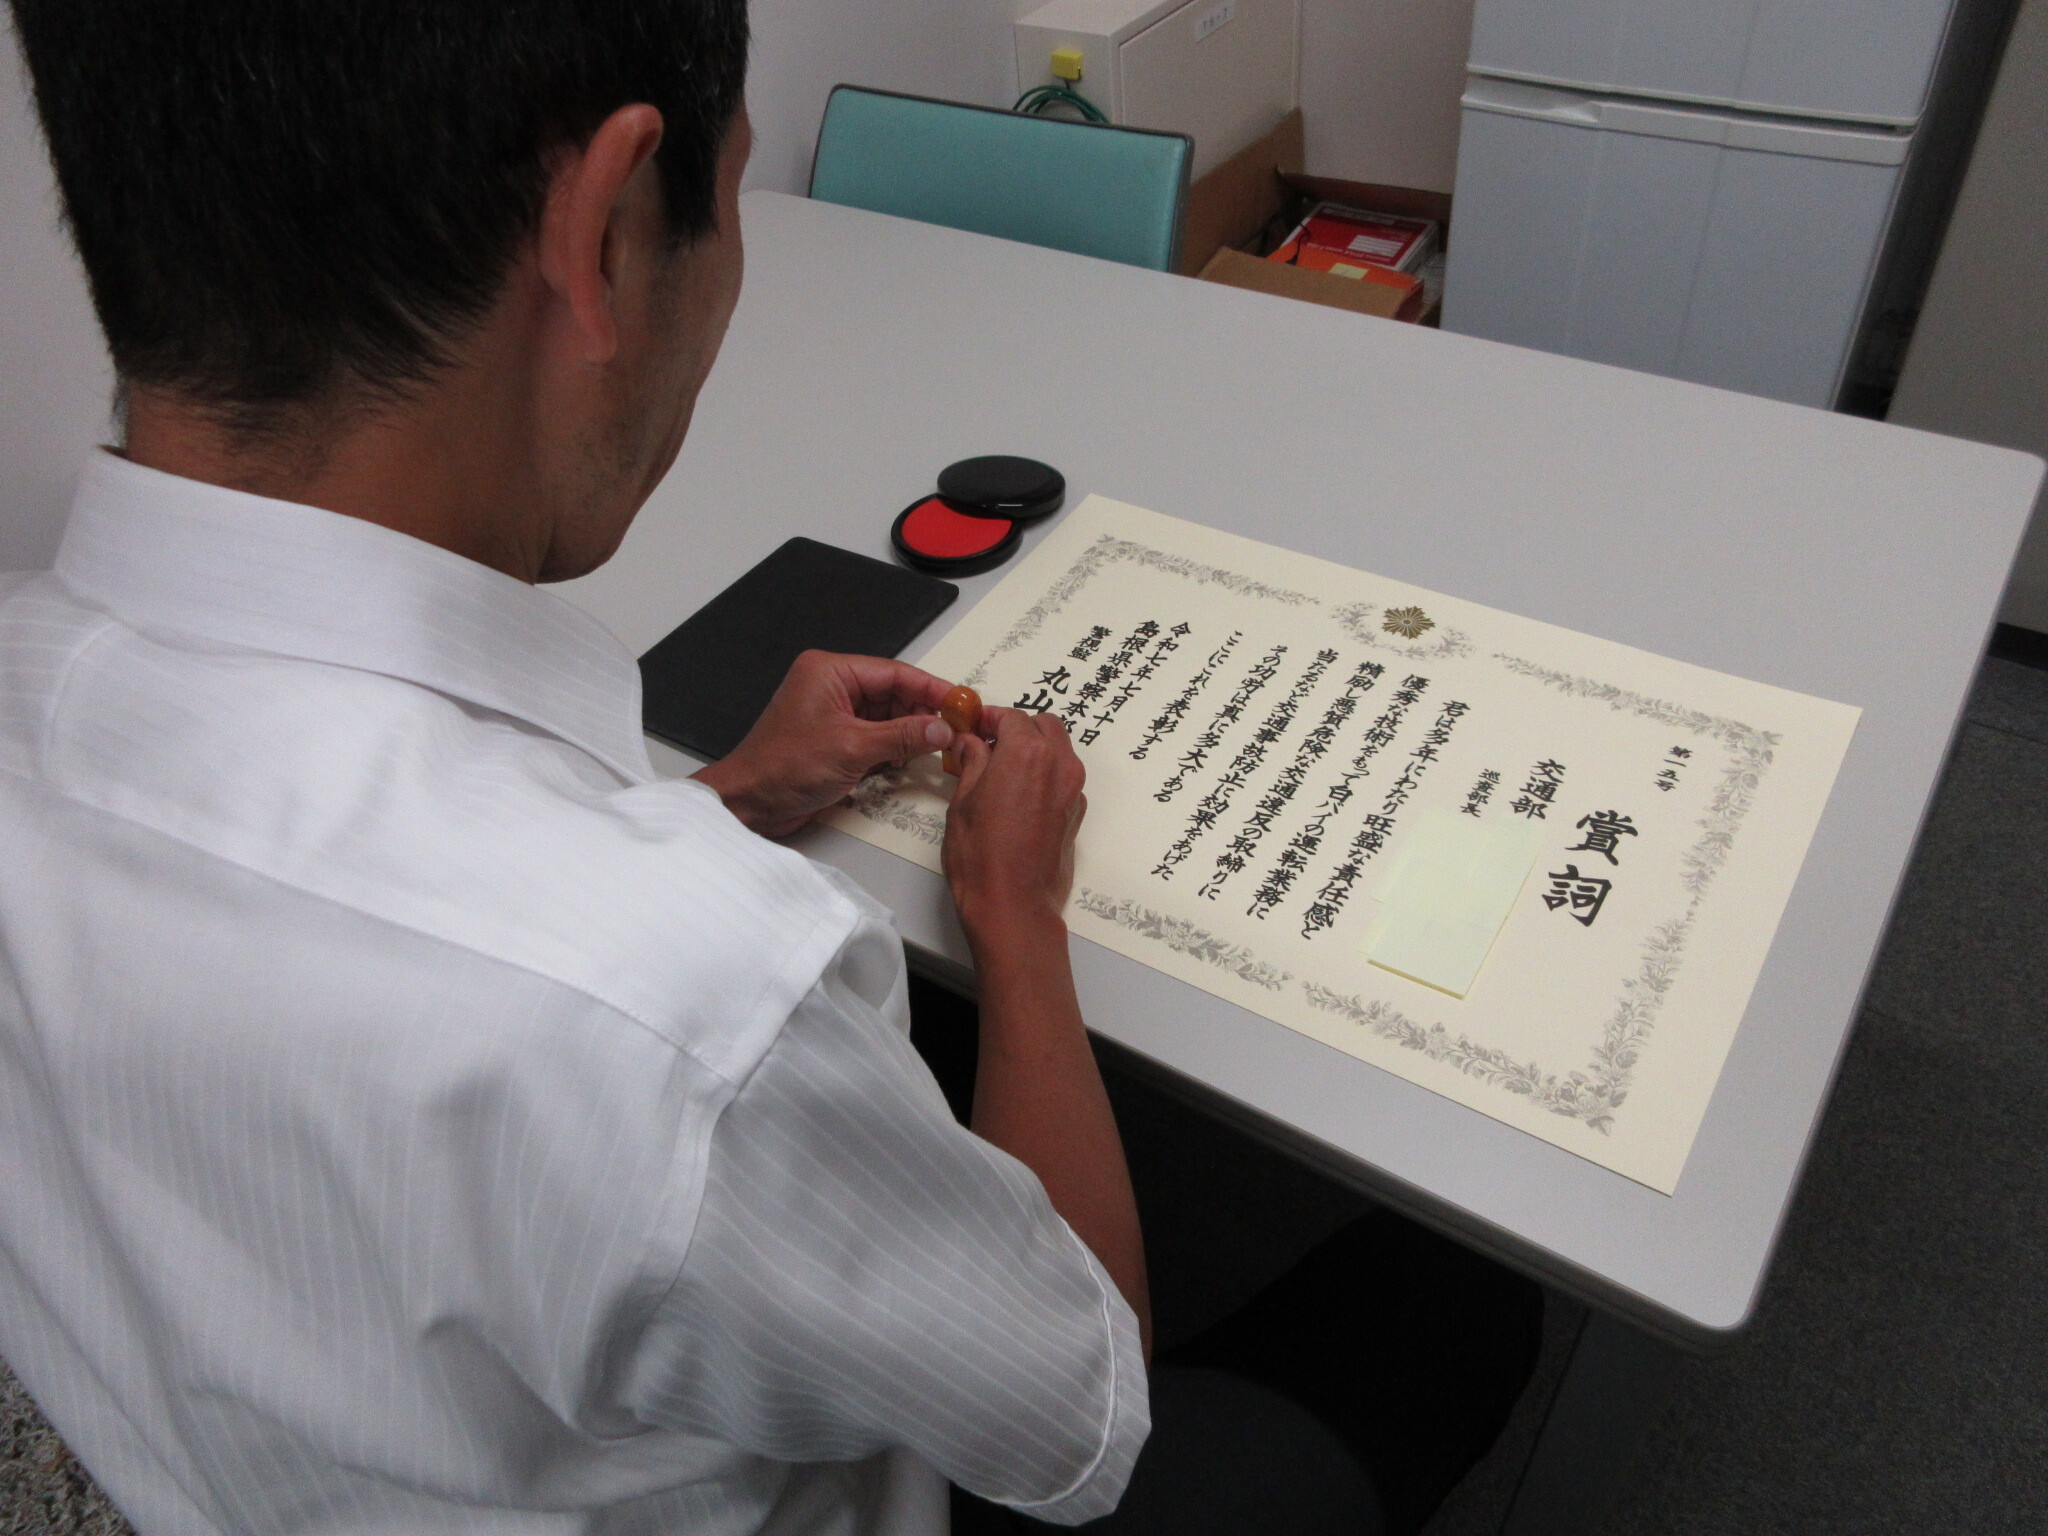 第一五号
賞詞
交通部
巡査部長
君は多年にわたり旺盛な責任感と
優秀な技術をもって白バイの運転業務に
精励し悪質危険な交通違反の取締りに
当たるなど交通事故防止に効果をあげた
その功労は真に多大である
ここにこれを表彰する
令和七年七月十日
島根県警察本部
警視監 丸山